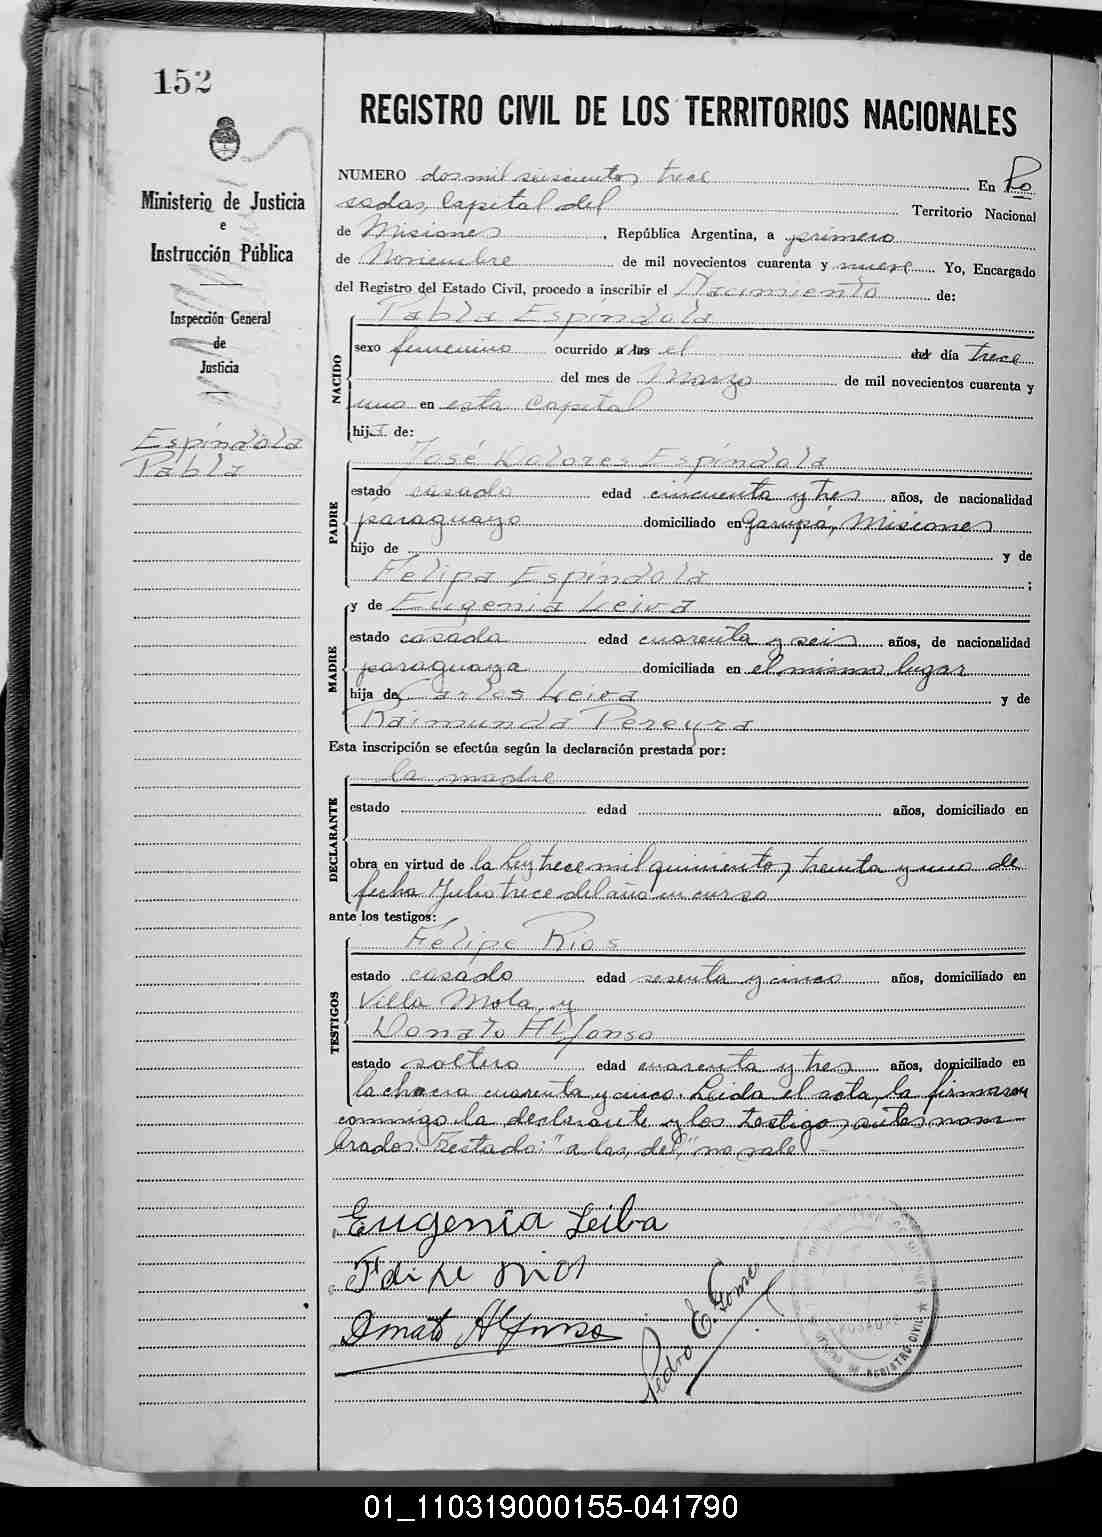 152
REGISTRO CIVIL DE LOS TERRITORIOS NACIONALES
Ministerio de Justicia
e
Instrucción Pública
Inspección General
de
Justicia
Espíndola
Pabla
NUMERO dos mil seiscientos trece En Po
sadas, Capital del Territorio Nacional
de Misiones, República Argentina, a primero
de Noviembre de mil novecientos cuarenta y nueve Yo, Encargado
del Registro del Estado Civil, procedo a inscribir el Nacimiento de:
Pabla Espíndola
NACIDO
sexo femenino ocurrido a las el del día trece
del mes de Marzo de mil novecientos cuarenta y
uno en esta Capital
hija de:
José Dolores Espíndola
PADRE
estado casado edad cincuenta y tres años, de nacionalidad
paraguayo domiciliado en Garupá, Misiones
hijo de y de
Felipa Espíndola ;
y de Eugenia Leiva
MADRE
estado casada edad cuarenta y seis años, de nacionalidad
paraguaya domiciliada en el mismo lugar
hija de Carlos Leiva y de
Raimunda Pereyra
Esta inscripción se efectúa según la declaración prestada por:
la madre
DECLARANTE
estado edad años, domiciliado en
obra en virtud de la Ley trece mil quinientos treinta y uno de
fecha Julio trece del año en curso
ante los testigos:
Felipe Rios
TESTIGOS
estado casado edad sesenta y cinco años, domiciliado en
Villa Mola y
Donato Alfonso
estado soltero edad cuarenta y tres años, domiciliado en
la chacra cuarenta y cinco. Leida el acta, la firmaron
conmigo la declarante y los testigos antes nom
brados. Testado: "a las, del", no vale
Eugenia Leiba
Felipe Rios
Donato Alfonso
Pedro E. Gomez
POSADAS
REGISTRO CIVIL
01_110319000155-041790